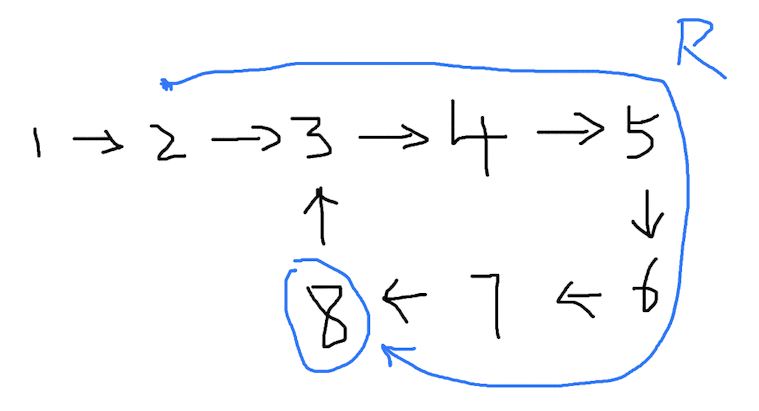 R
1 → 2 → 3 → 4 → 5
↑ ↓
8 ← 7 ← 6